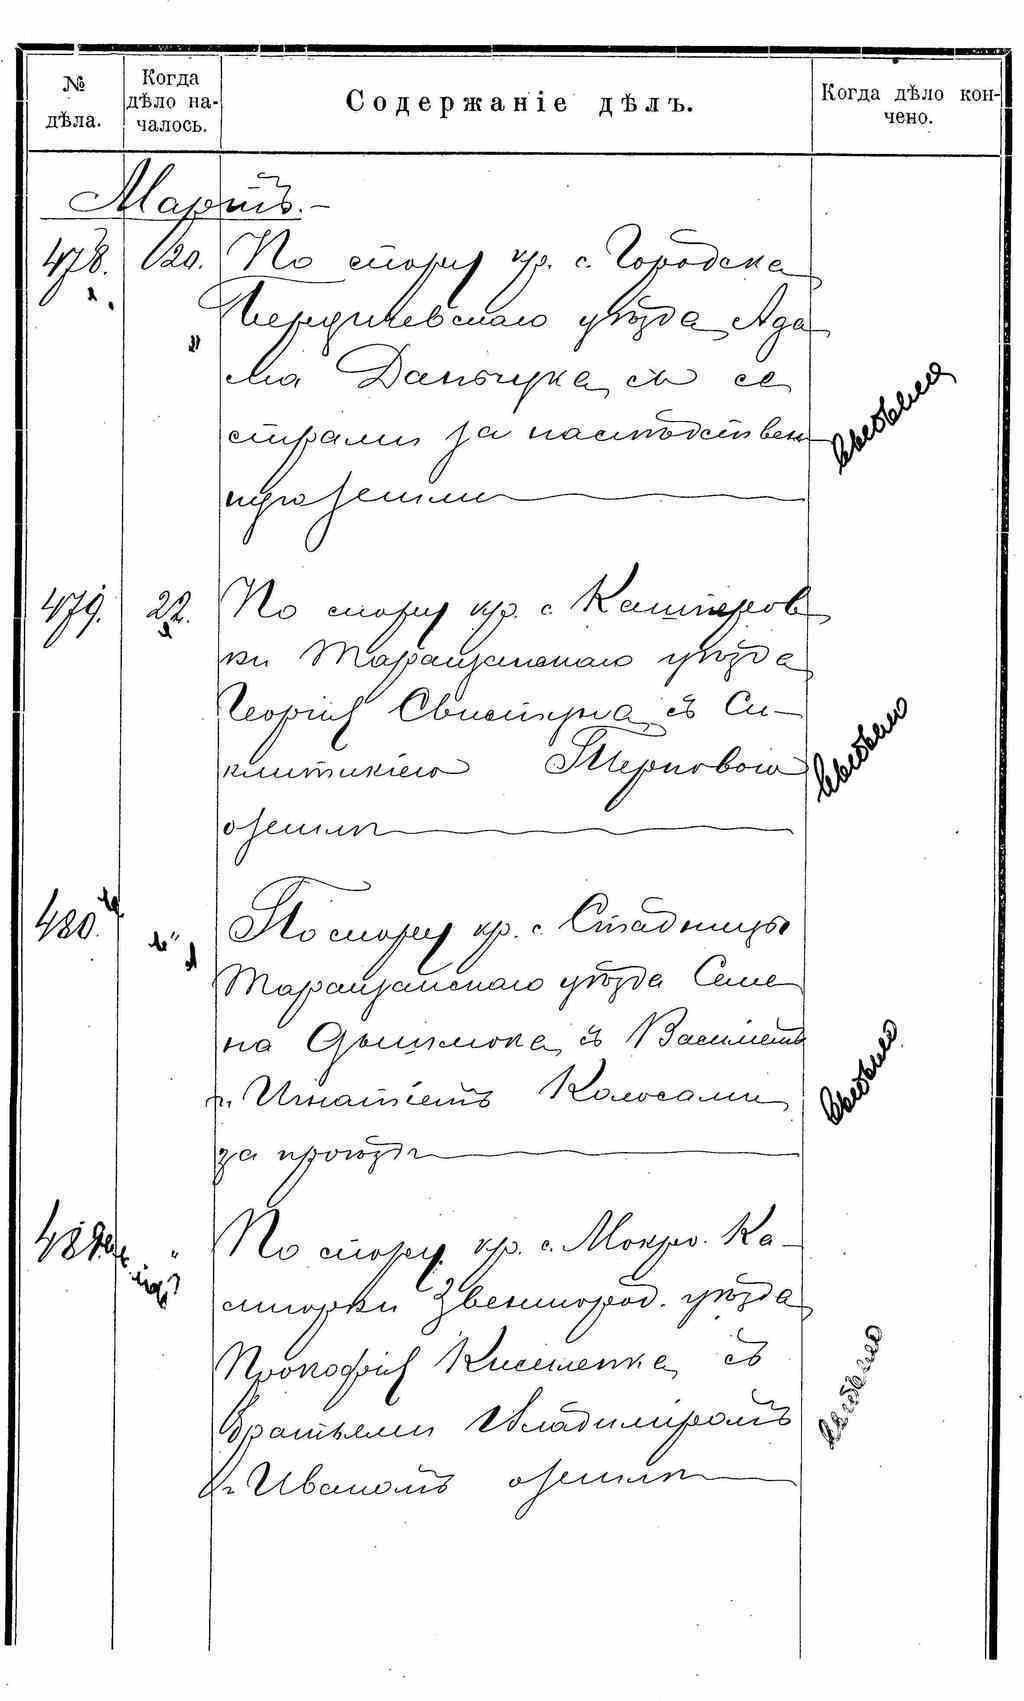 № дѣла.
Когда дѣло на-
чалось.
Содержаніе дѣлъ.
Когда дѣло кон-
чено.
Мартъ.
478. 20. По спору кр. с. Городска
Бердичевскаго уѣзда Ада
ма Данчука съ се
страми за наслѣдствен
ную землю
выбыло
479. 22. По спору кр. с. Кашперов
ки Таращанскаго уѣзда
Георгія Свистуна съ Си-
клитикіею Терновою
о землѣ
выбыло
480. " По спору кр. с. Стадницы
Таращанскаго уѣзда Семе
на съ Василіемъ
и Игнатіемъ Колосами
за проѣздъ
выбыло
481. " По спору кр. с. Мокро. Ка-
лигорки Звенигород. уѣзда
Прокофія Киселенка съ
братьями Владиміромъ
и Иваномъ о землѣ
выбыло